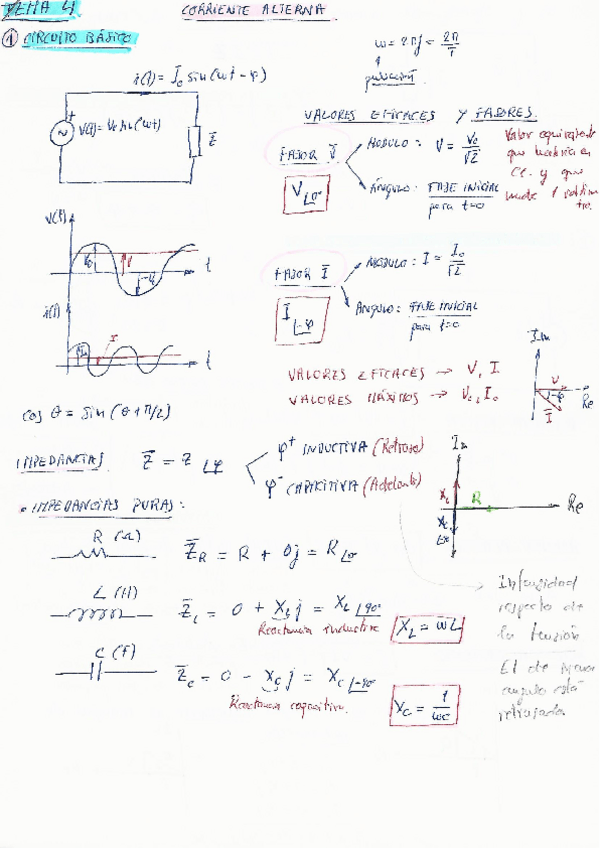 TEMA 4 CORRIENTE ALTERNA
① CIRCUITO BÁSICO
ω = 2πf = 2π/T
pulsación
i(t) = I₀ sin(ωt - φ)
V(t) = V₀ sin(ωt)
Z̄
VALORES EFICACES Y FASORES.
FASOR V̄
MÓDULO: V = V₀/√2
Valor equivalente
que tendría en
CC. y que
V∟0º
ÁNGULO: FASE INICIAL
para t=0
V(t)
V₀
V
t
FASOR Ī
MÓDULO: I = I₀/√2
I∟-φ
ÁNGULO: FASE INICIAL
para t=0
i(t)
I
t
VALORES EFICACES → V, I
VALORES MÁXIMOS → V₀, I₀
Im
V
Re
-φ
Ī
cos θ = sin(θ + π/2)
IMPEDANCIAS Z̄ = Z∟φ
φ⁺ INDUCTIVA (Retraso)
φ⁻ CAPACITIVA (Adelanto)
Im
XL
R
Re
Xc
• IMPEDANCIAS PURAS:
R (Ω)
Z̄R = R + 0j = R∟0º
L (H)
Z̄L = 0 + XL j = XL∟90º
Reactancia inductiva
XL = ωL
C (F)
Z̄c = 0 - Xc j = Xc∟-90º
Reactancia capacitiva.
Xc = 1/ωc
Intensidad
respecto de
la tensión
El de menor
angulo está
retrasada